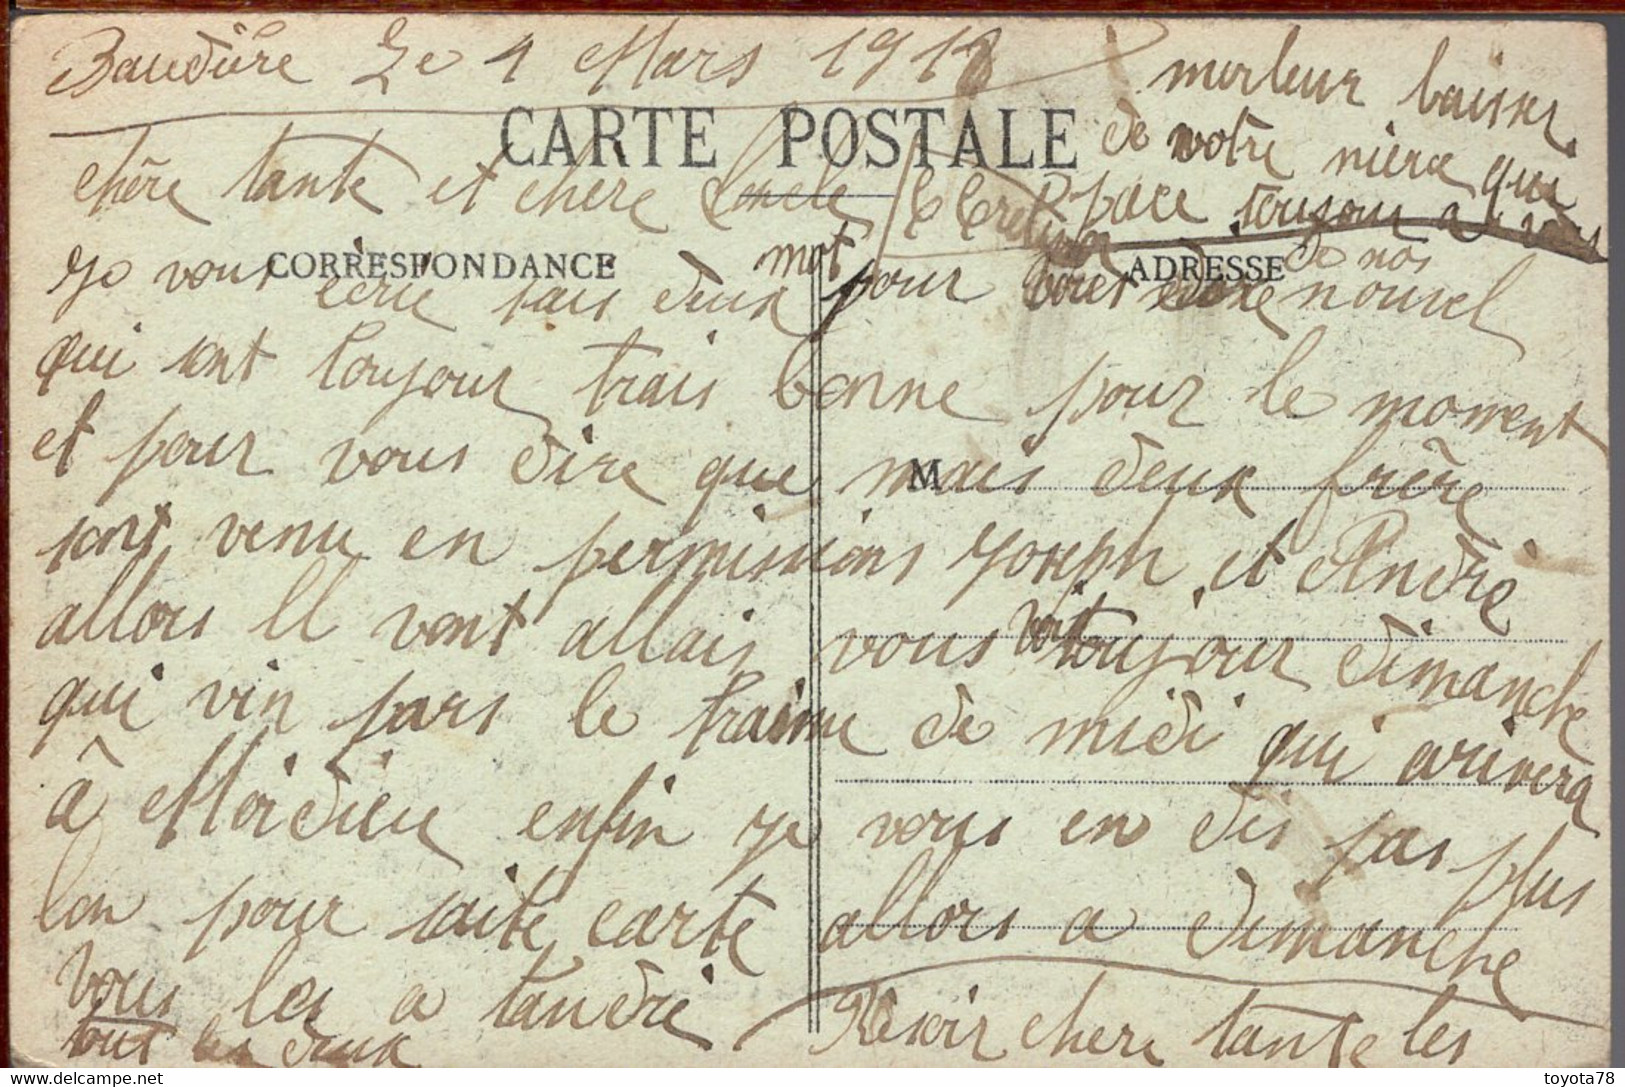 Baudière Le 4 Mars 1918
CARTE POSTALE
chère tante et chere oncle
CORRESPONDANCE
ADRESSE
Je vous écrie sais deux mot pour vous de nos nouvel
qui sont toujour trais bonne pour le moment
et pour vous dire que mais deux frère
M
sont venu en permissions Joseph et André
allors Il vont allais vous voit toujour dimanche
qui vin pars le traine de midi qui arivera
à Moidieu enfin je vous en dis pas plus
lon pour saite carte allors a dimanche
vous les a tandré Resoir chere tante les
tout les deux
merleur baiser
de votre nièce qui
pace toujour a vous
toyota78